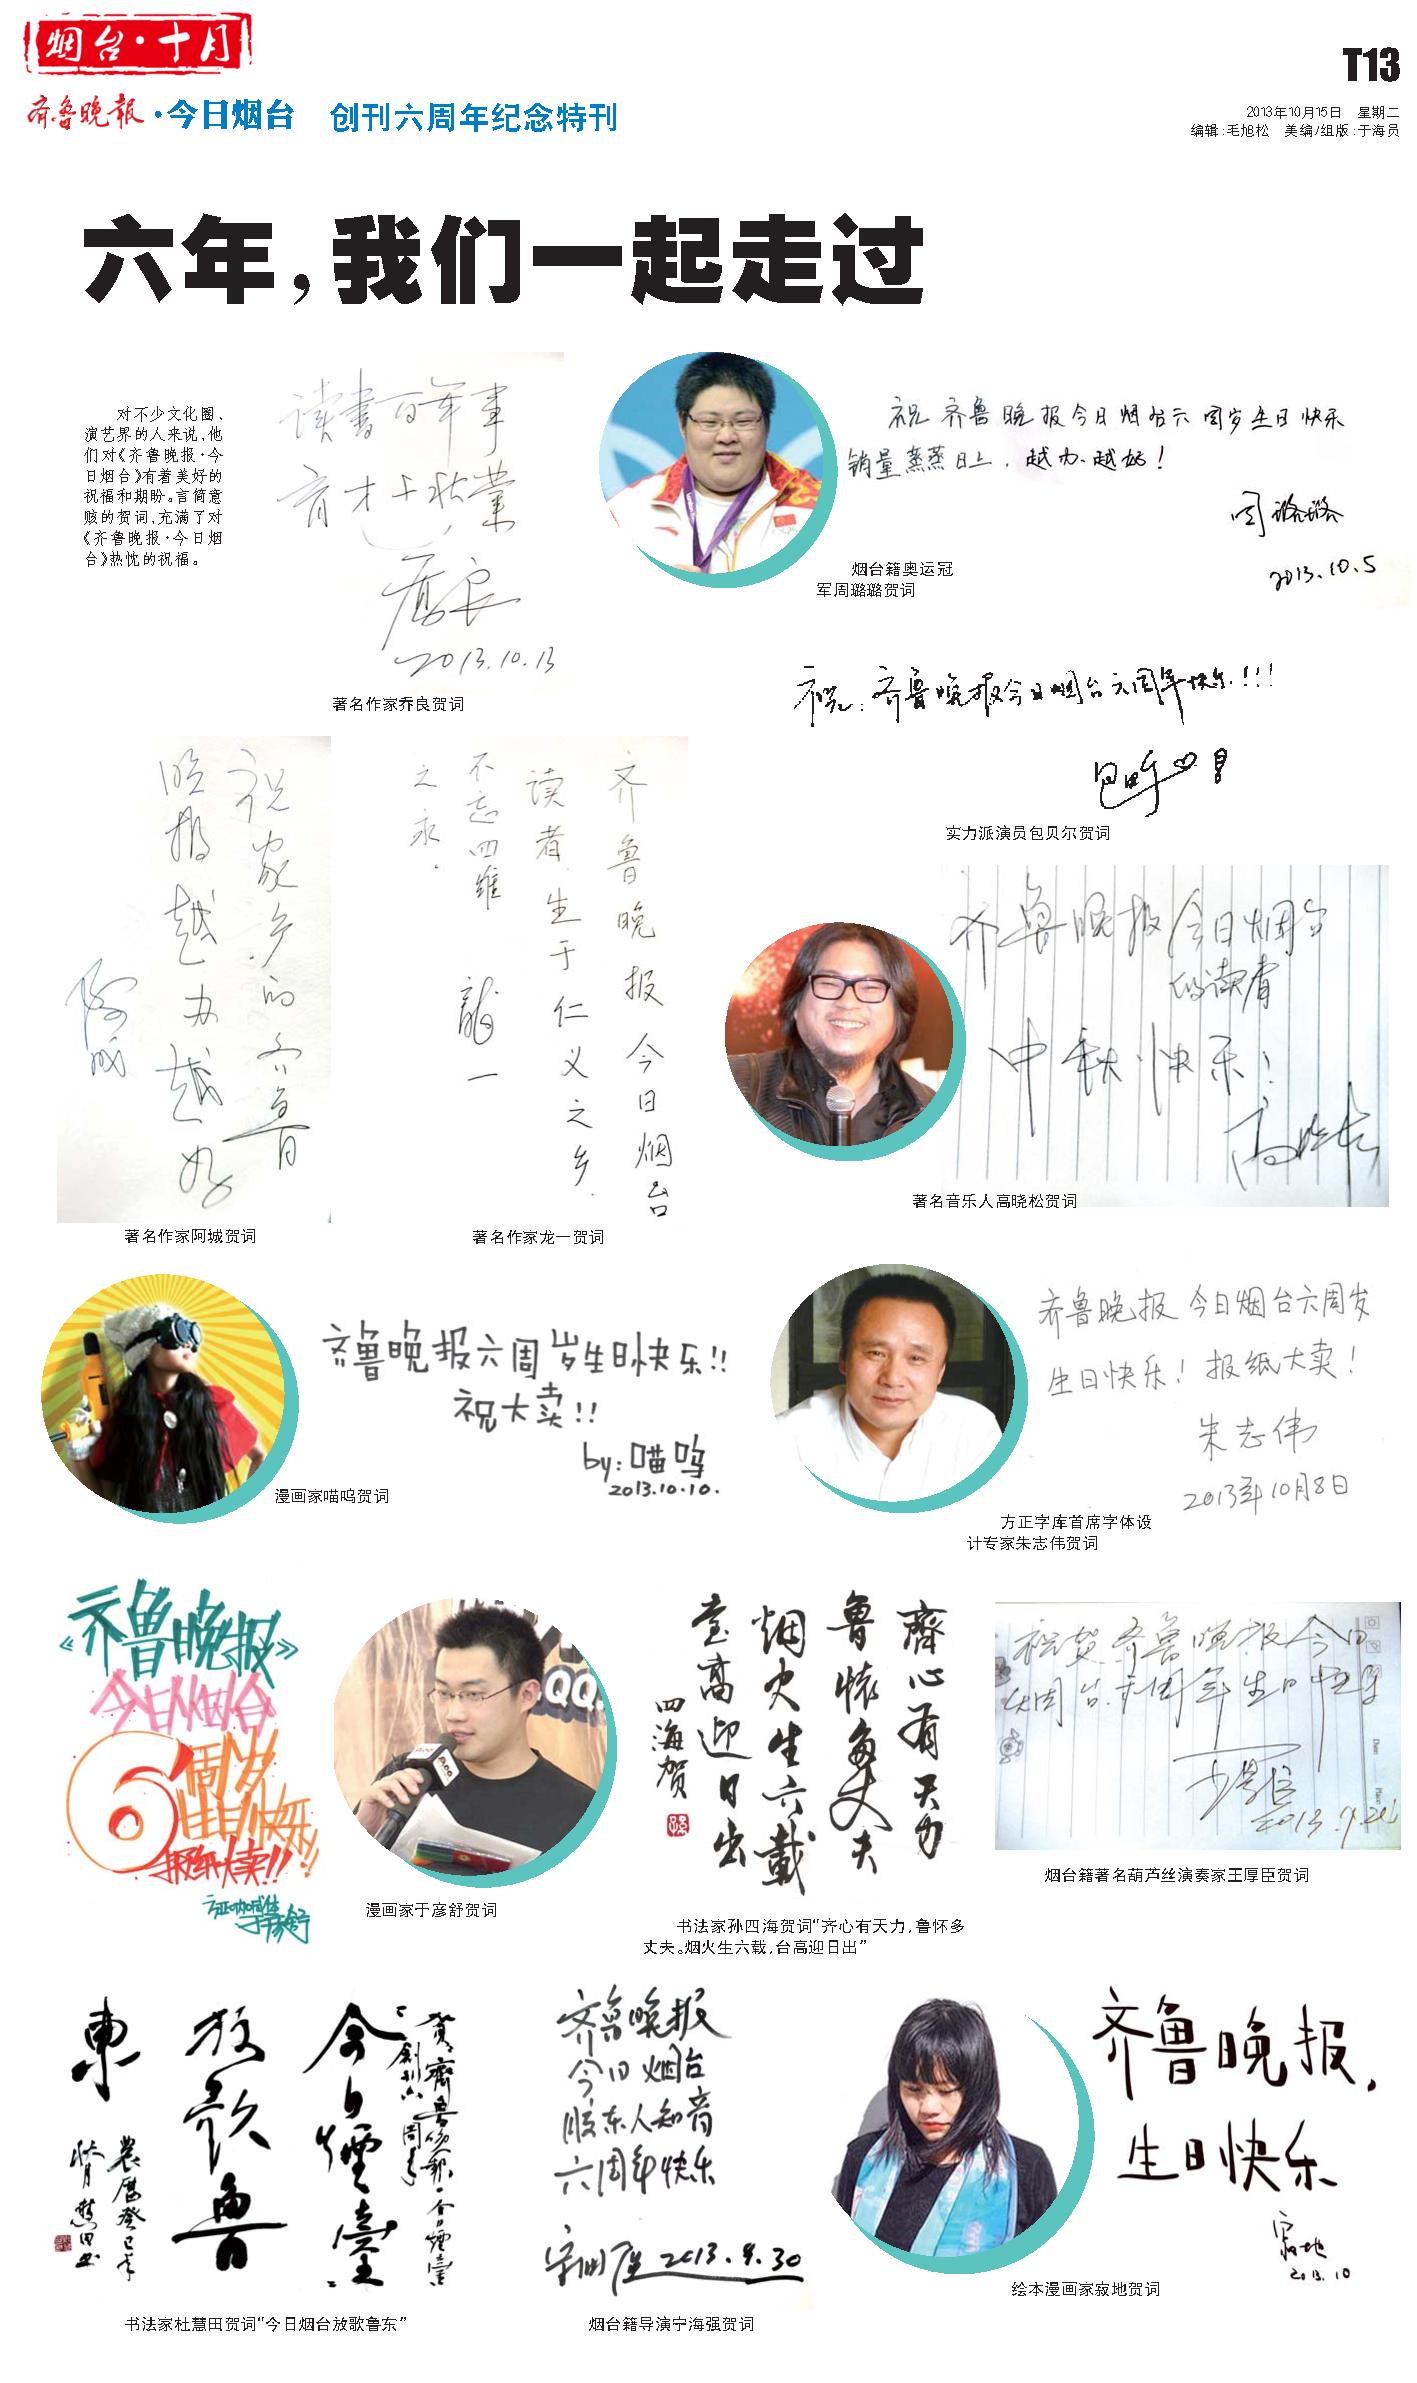 烟台·十月
T13
齐鲁晚报·今日烟台 创刊六周年纪念特刊
2013年10月15日 星期二
编辑:毛旭松 美编/组版:于海员
六年,我们一起走过
对不少文化圈、
演艺界的人来说,他
们对《齐鲁晚报·今
日烟台》有着美好的
祝福和期盼。言简意
赅的贺词,充满了对
《齐鲁晚报·今日烟
台》热忱的祝福。
读书百年事
育才千秋业
乔良
2013.10.13
著名作家乔良贺词
祝齐鲁晚报今日烟台六周岁生日快乐
销量蒸蒸日上,越办越好!
周璐璐
2013.10.5
烟台籍奥运冠
军周璐璐贺词
祝:齐鲁晚报今日烟台六周年快乐!!!
实力派演员包贝尔贺词
祝家乡的齐鲁
晚报越办越好
阿城
著名作家阿城贺词
齐鲁晚报今日烟台
读者,生于仁义之乡,
不忘四维
之永。
龍一
著名作家龙一贺词
齐鲁晚报今日烟台
的读者
中秋快乐!
高晓松
著名音乐人高晓松贺词
齐鲁晚报六周岁生日快乐!!
祝大卖!!
by:喵呜
2013.10.10.
漫画家喵呜贺词
齐鲁晚报今日烟台六周岁
生日快乐!报纸大卖!
朱志伟
2013年10月8日
方正字库首席字体设
计专家朱志伟贺词
《齐鲁晚报》
今日烟台
6周岁
生日快乐!!
报纸大卖!!
于彦舒
QQ.
漫画家于彦舒贺词
齊心有天力
鲁怀多丈夫
烟火生六載
台高迎日出
四海賀
书法家孙四海贺词“齐心有天力,鲁怀多
丈夫。烟火生六载,台高迎日出”
祝贺齐鲁晚报今日
烟台六周年生日快乐
烟台籍著名葫芦丝演奏家王厚臣贺词
賀齊鲁晚報·今日煙臺
創刊六周年
今日煙臺
放歌魯
東
農歷癸巳年
秋月慧田书
书法家杜慧田贺词“今日烟台放歌鲁东”
齐鲁晚报
今日烟台
胶东人知音
六周年快乐
2013.9.30
烟台籍导演宁海强贺词
齐鲁晚报,
生日快乐
寂地
2013.10
绘本漫画家寂地贺词